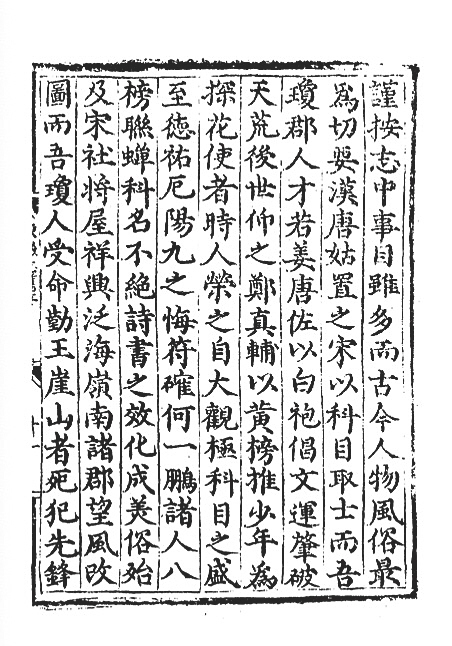 謹按志中事目雖多而古今人物風俗最
爲切要漢唐姑置之宋以科目取士而吾
瓊郡人才若姜唐佐以白袍倡文運肇破
天荒後世仰之鄭真輔以黃榜推少年為
探花使者時人榮之自大觀極科目之盛
至德祐厄陽九之悔符確何一鵬諸人八
榜聯蟬科名不絶詩書之效化成美俗始
及宋社將屋祥興泛海嶺南諸郡望風改
圖而吾瓊人受命勤王崖山者死犯先鋒